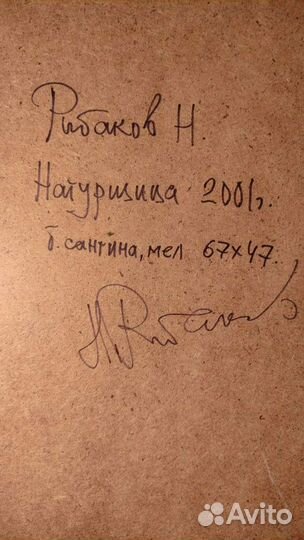 Рибаков Н.
Натурщица 2001г.
б. сангина, мел 67х47.
Н. Рибаков
Avito